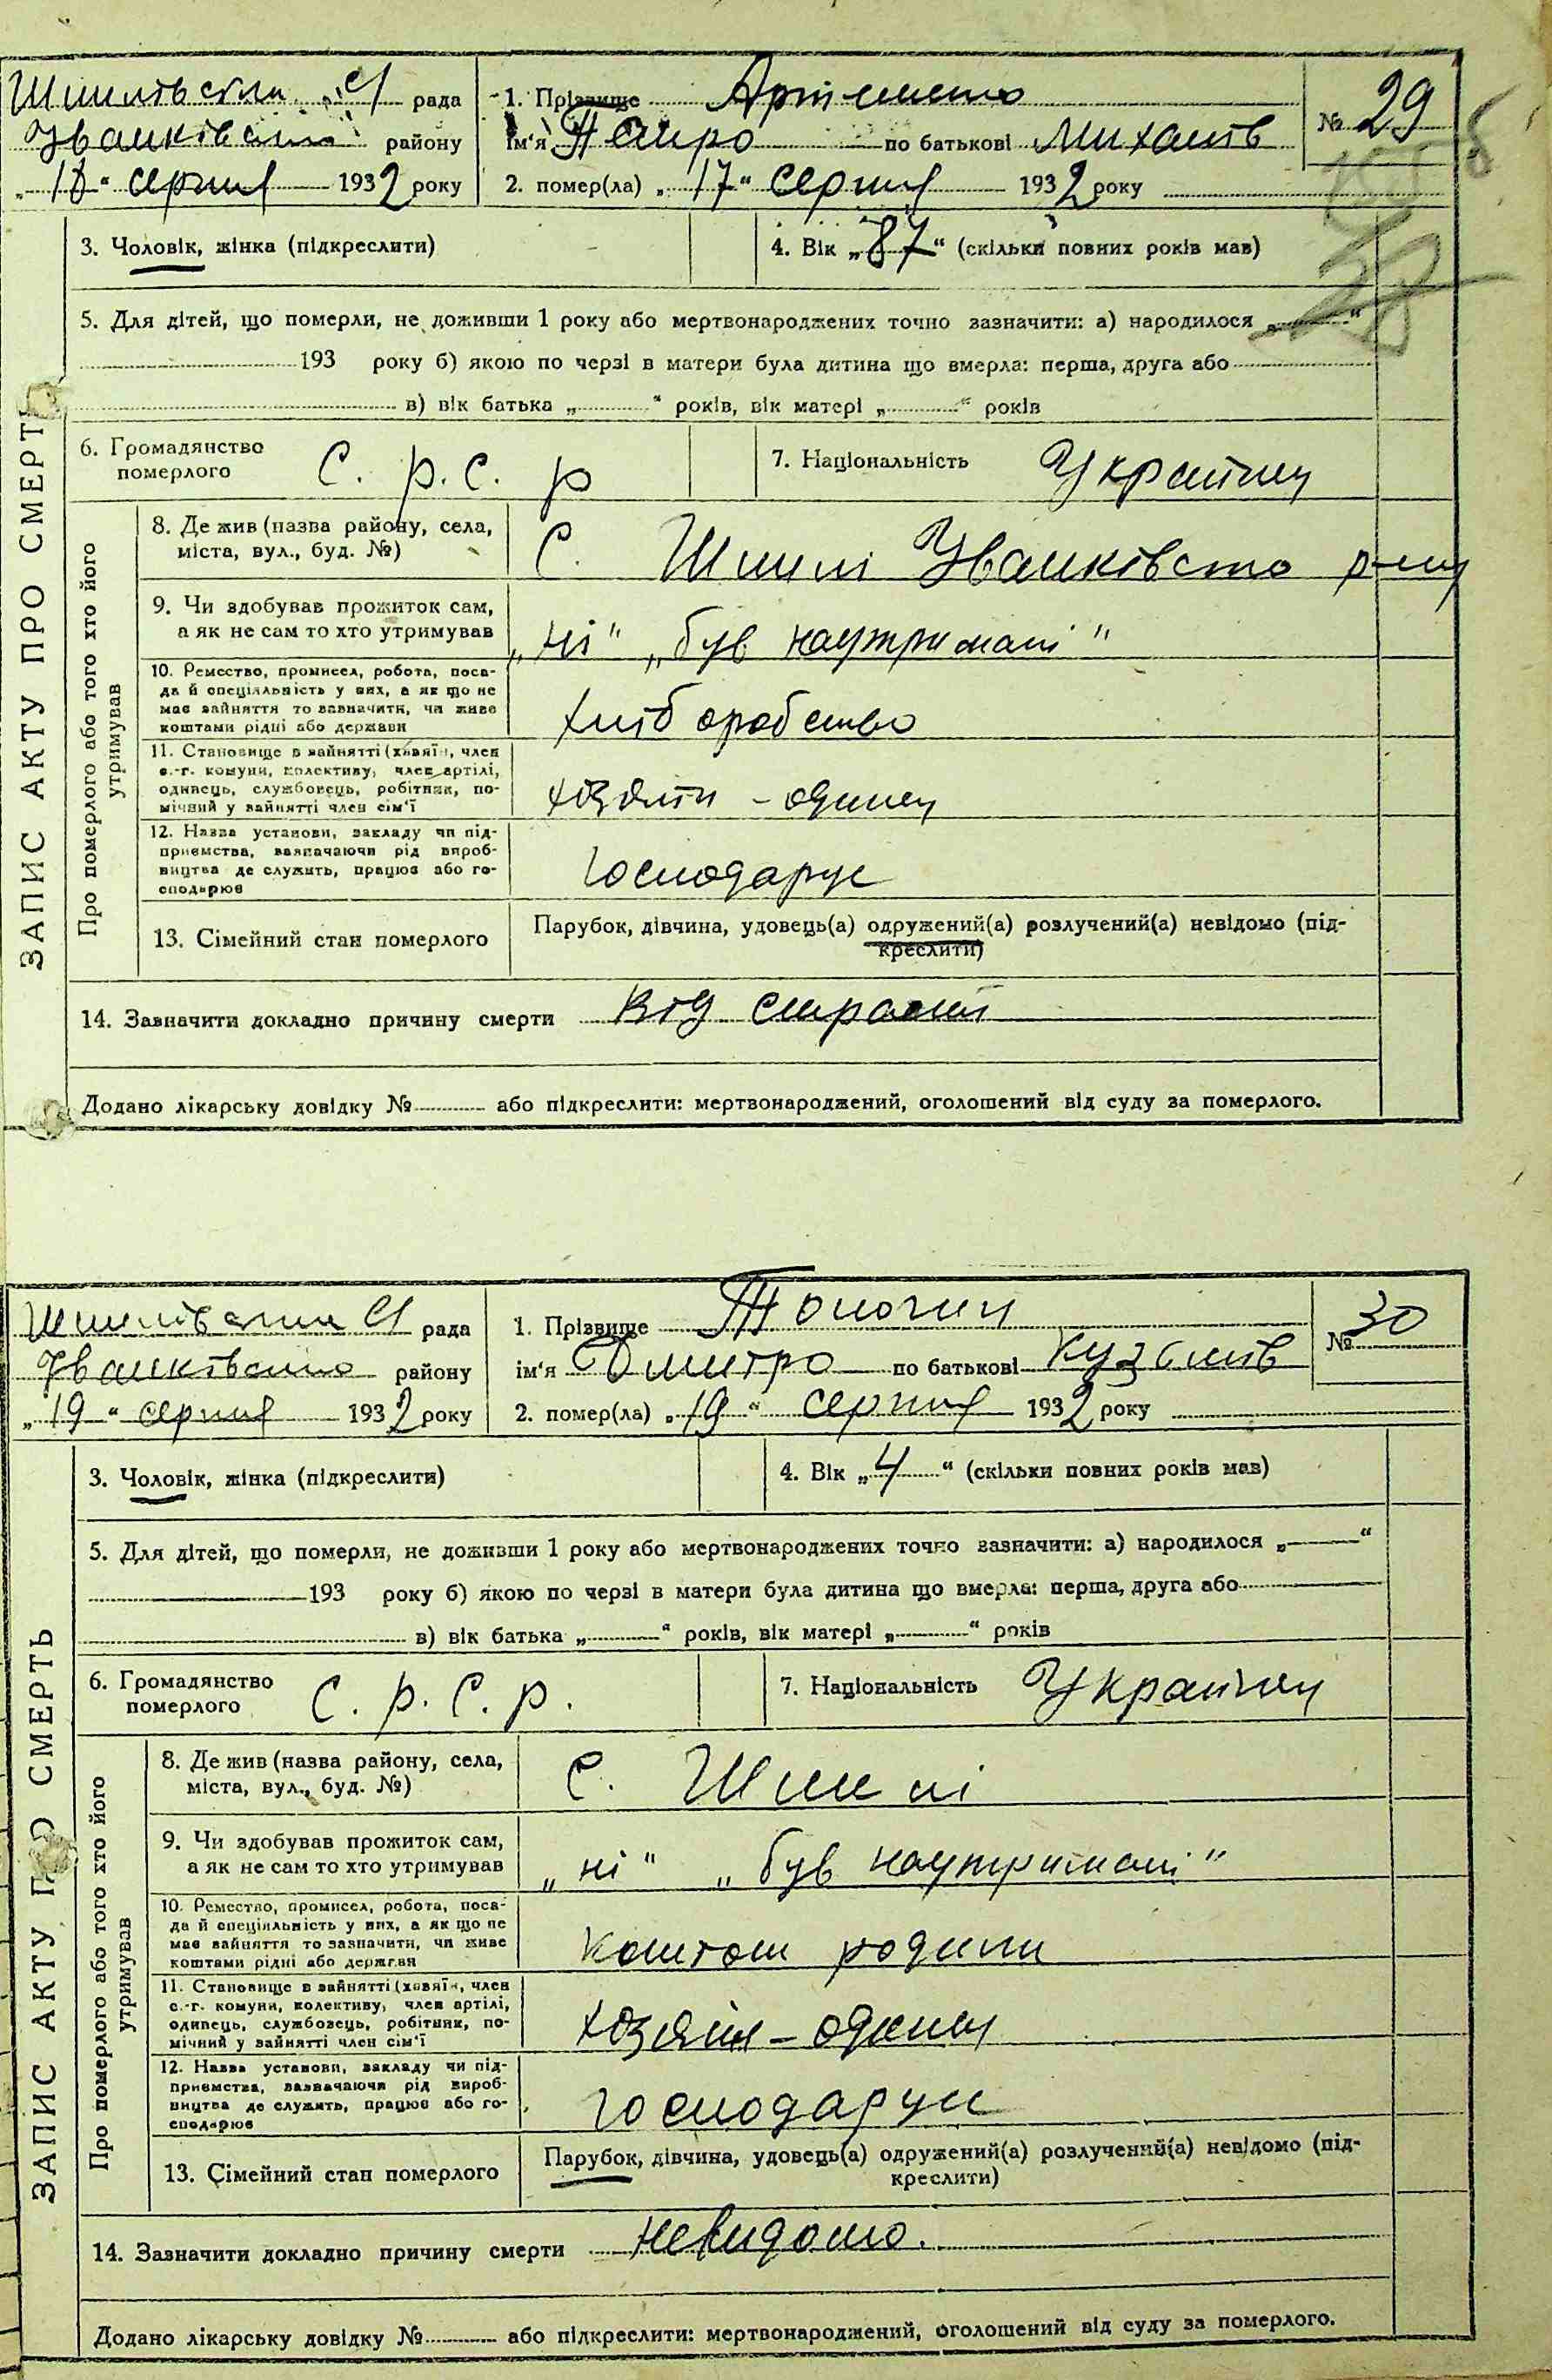 Шпилівська с/ рада
Іванківського району
„18“ серпня 1932 року
1. Прізвище Артеменко
ім‘я Петро по батькові Михайлів
№ 29
2. помер(ла) „17“ серпня 1932 року
3. Чоловік, жінка (підкреслити)
4. Вік „87“ (скільки повних років мав)
5. Для дітей, що померли, не доживши 1 року або мертвонароджених точно зазначити: а) народилося „ “
193 року б) якою по черзі в матери була дитина що вмерла: перша, друга або
в) вік батька „ “ років, вік матері „ “ років
6. Громадянство
померлого
С. р. С. р
7. Національність Українец
ЗАПИС АКТУ ПРО СМЕРТЬ
Про померлого або того хто його
утримував
8. Де жив (назва району, села,
міста, вул., буд. №)
С. Шпилі Іванківсько р-ну
9. Чи здобував прожиток сам,
а як не сам то хто утримував
„ні“ „був наутримані“
10. Ремество, промисел, робота, поса-
да й спеціяльність у них, а як що не
має зайняття то зазначити, чи живе
коштами рідні або держави
хліборобство
11. Становище в зайнятті (хазяїн, член
с.-г. комуни, колективу, член артілі,
одинець, службовець, робітник, по-
мічний у зайнятті член сім‘ї
хозяїн - одинец
12. Назва установи, закладу чи під-
приємства, зазначаючи рід вироб-
ництва де служить, працює або го-
сподарює
господарує
13. Сімейний стан померлого
Парубок, дівчина, удовець(а) одружений(а) розлучений(а) невідомо (під-
креслити)
14. Зазначити докладно причину смерти від старости
Додано лікарську довідку № або підкреслити: мертвонароджений, оголошений від суду за померлого.
Шпилівська с/ рада
Іванківсько району
„19“ серпня 1932 року
1. Прізвище
ім‘я Дмитро по батькові Кузьмів
№ 30
2. помер(ла) „19“ серпня 1932 року
3. Чоловік, жінка (підкреслити)
4. Вік „4“ (скільки повних років мав)
5. Для дітей, що померли, не доживши 1 року або мертвонароджених точно зазначити: а) народилося „ “
193 року б) якою по черзі в матери була дитина що вмерла: перша, друга або
в) вік батька „ “ років, вік матері „ “ років
6. Громадянство
померлого
С. р. С. р.
7. Національність Українец
ЗАПИС АКТУ ПРО СМЕРТЬ
Про померлого або того хто його
утримував
8. Де жив (назва району, села,
міста, вул., буд. №)
С. Шпилі
9. Чи здобував прожиток сам,
а як не сам то хто утримував
„ні“ „був наутримані“
10. Ремество, промисел, робота, поса-
да й спеціяльність у них, а як що не
має зайняття то зазначити, чи живе
коштами рідні або держави
коштом родини
11. Становище в зайнятті (хазяїн, член
с.-г. комуни, колективу, член артілі,
одинець, службовець, робітник, по-
мічний у зайнятті член сім‘ї
хозяїн - одинец
12. Назва установи, закладу чи під-
приємства, зазначаючи рід вироб-
ництва де служить, працює або го-
сподарює
господарує
13. Сімейний стан померлого
Парубок, дівчина, удовець(а) одружений(а) розлучений(а) невідомо (під-
креслити)
14. Зазначити докладно причину смерти невидомо.
Додано лікарську довідку № або підкреслити: мертвонароджений, оголошений від суду за померлого.